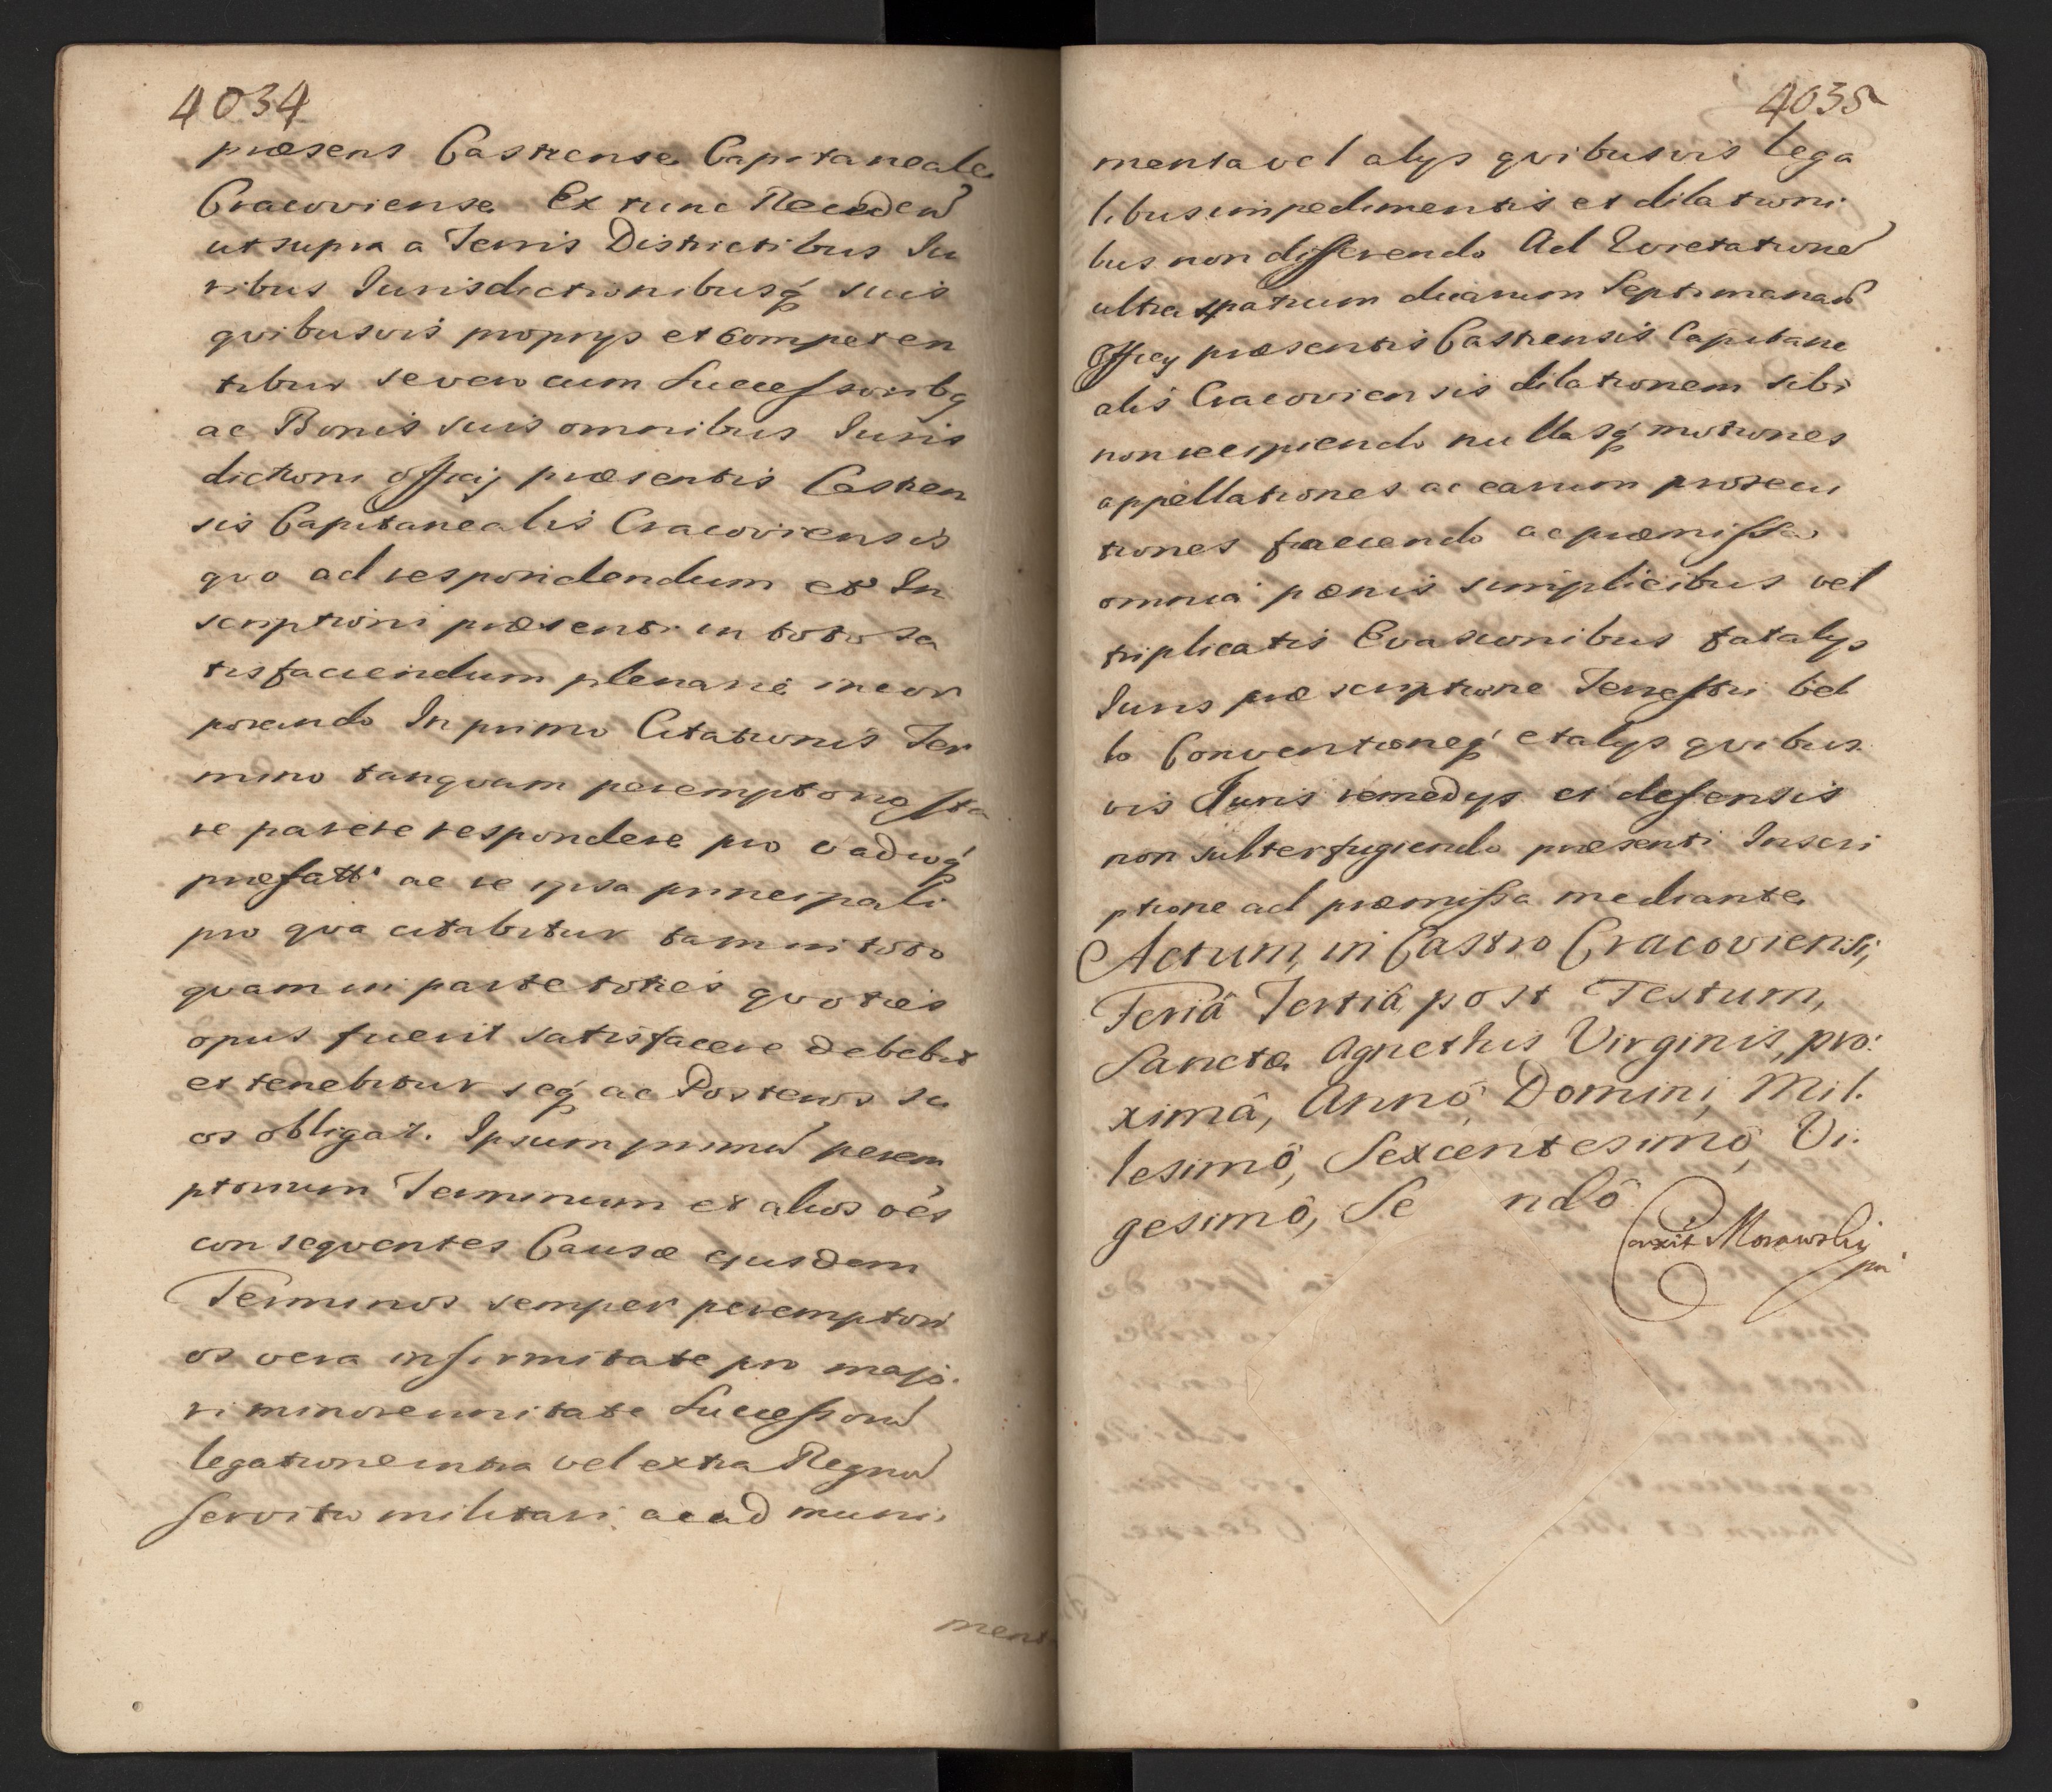 4034
præsens Castrense Capitaneale
Cracoviense Ex tunc Recedend
ut supra a Terris Districtibus Iu
ribus Iurisdictionibusq suis
qvibusvis proprys et competen
tibus se vero cum Successoribq
ac Bonis suis omnibus Iuris
dictioni officij præsentis Castren
sis Capitanealis Cracoviensis
qvo ad respondendum et In
scriptioni præsenti in toto sa
tisfaciendum plenarie incor
porando In primo Citationis Ter
mino tanqvam peremptorio sta
re parere respondere pro vadioq
præfatt ac re ipsa principali
pro qva citabitur tam in toto
qvam in parte toties qvoties
opus fuerit satisfacere debebit
et tenebitur seq ac Posteros su
os obligat. Ipsum primu perem
ptorium Terminum et alios oes
conseqventes Causæ ejusdem
Terminos semper peremptori
os vera infirmitate pro majo.
ri minorennitate Successoru
legatione intra vel extra Regnu
servitio militari ac ad muni.
menta
4035
menta vel alys qvibusvis lega
libus impedimentis et dilationi
bus non differendo Ad Evictatione
ultra spatium duarum Septimanaru
Officy præsentis Castrensis Capitane
alis Cracoviensis dilationem sibi
non recipiendo nullasq motiones
appellationes ac earum prosecu
tiones faciendo ac præmissa
omnia pœnis simplicibus vel
triplicatis Evasionibus fatalys
Iuris præscriptione Terrestri bel
lo Conventioneq et alys qvibus
vis Iuris remedys et defensis
non subterfugiendo præsenti Inscri
ptione ad præmissa mediante
Actum, in Castro Cracoviensi,
Feriâ Tertiâ post Festum,
Sanctæ Agnethis Virginis, pro:
ximâ, Annô Domini Mil.
lesimô, Sexcentesimô, Vi.
gesimô, Se ndô
Morawsky